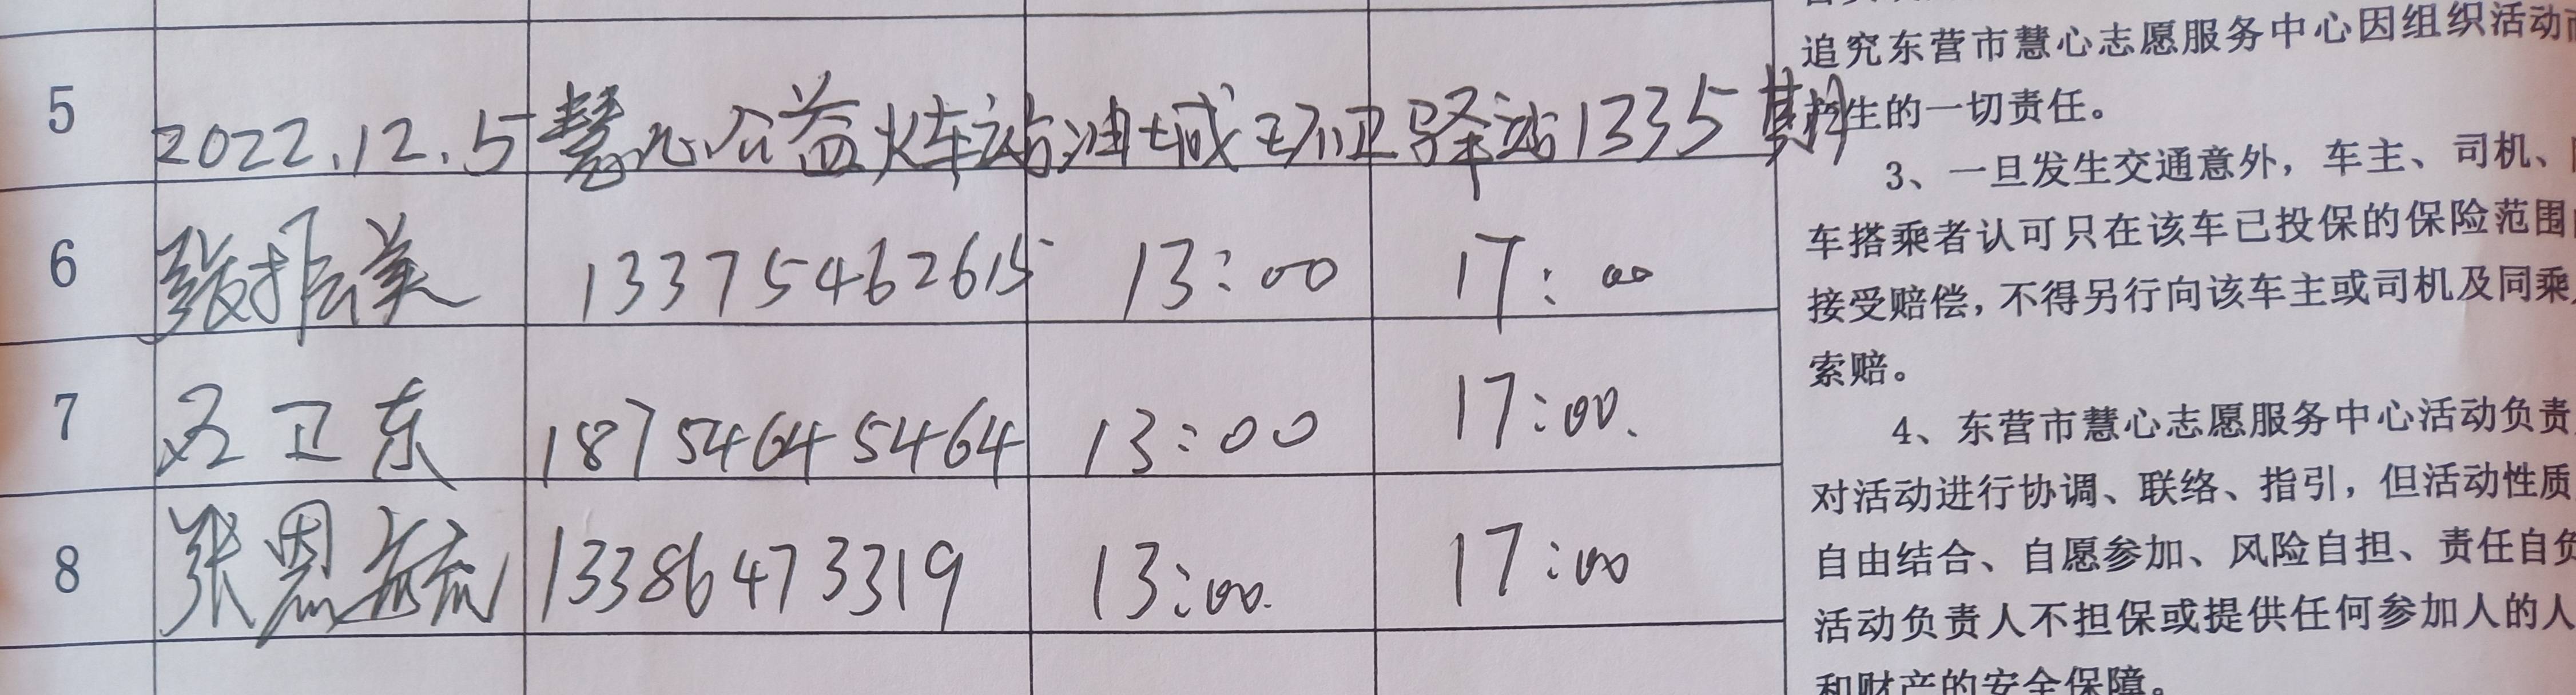 5 2022.12.5慧心公益火车站油城环卫驿站1335期
6 张振美 13375462615 13:00 17:00
7 卫东 18754645464 13:00 17:00.
8 张恩 13386473319 13:00. 17:00
追究东营市慧心志愿服务中心因组织活动而
生的一切责任。
3、一旦发生交通意外，车主、司机、
车搭乘者认可只在该车已投保的保险范围
接受赔偿，不得另行向该车主或司机及同乘
索赔。
4、东营市慧心志愿服务中心活动负责
对活动进行协调、联络、指引，但活动性质
自由结合、自愿参加、风险自担、责任自负
活动负责人不担保或提供任何参加人的人
和财产的安全保障。